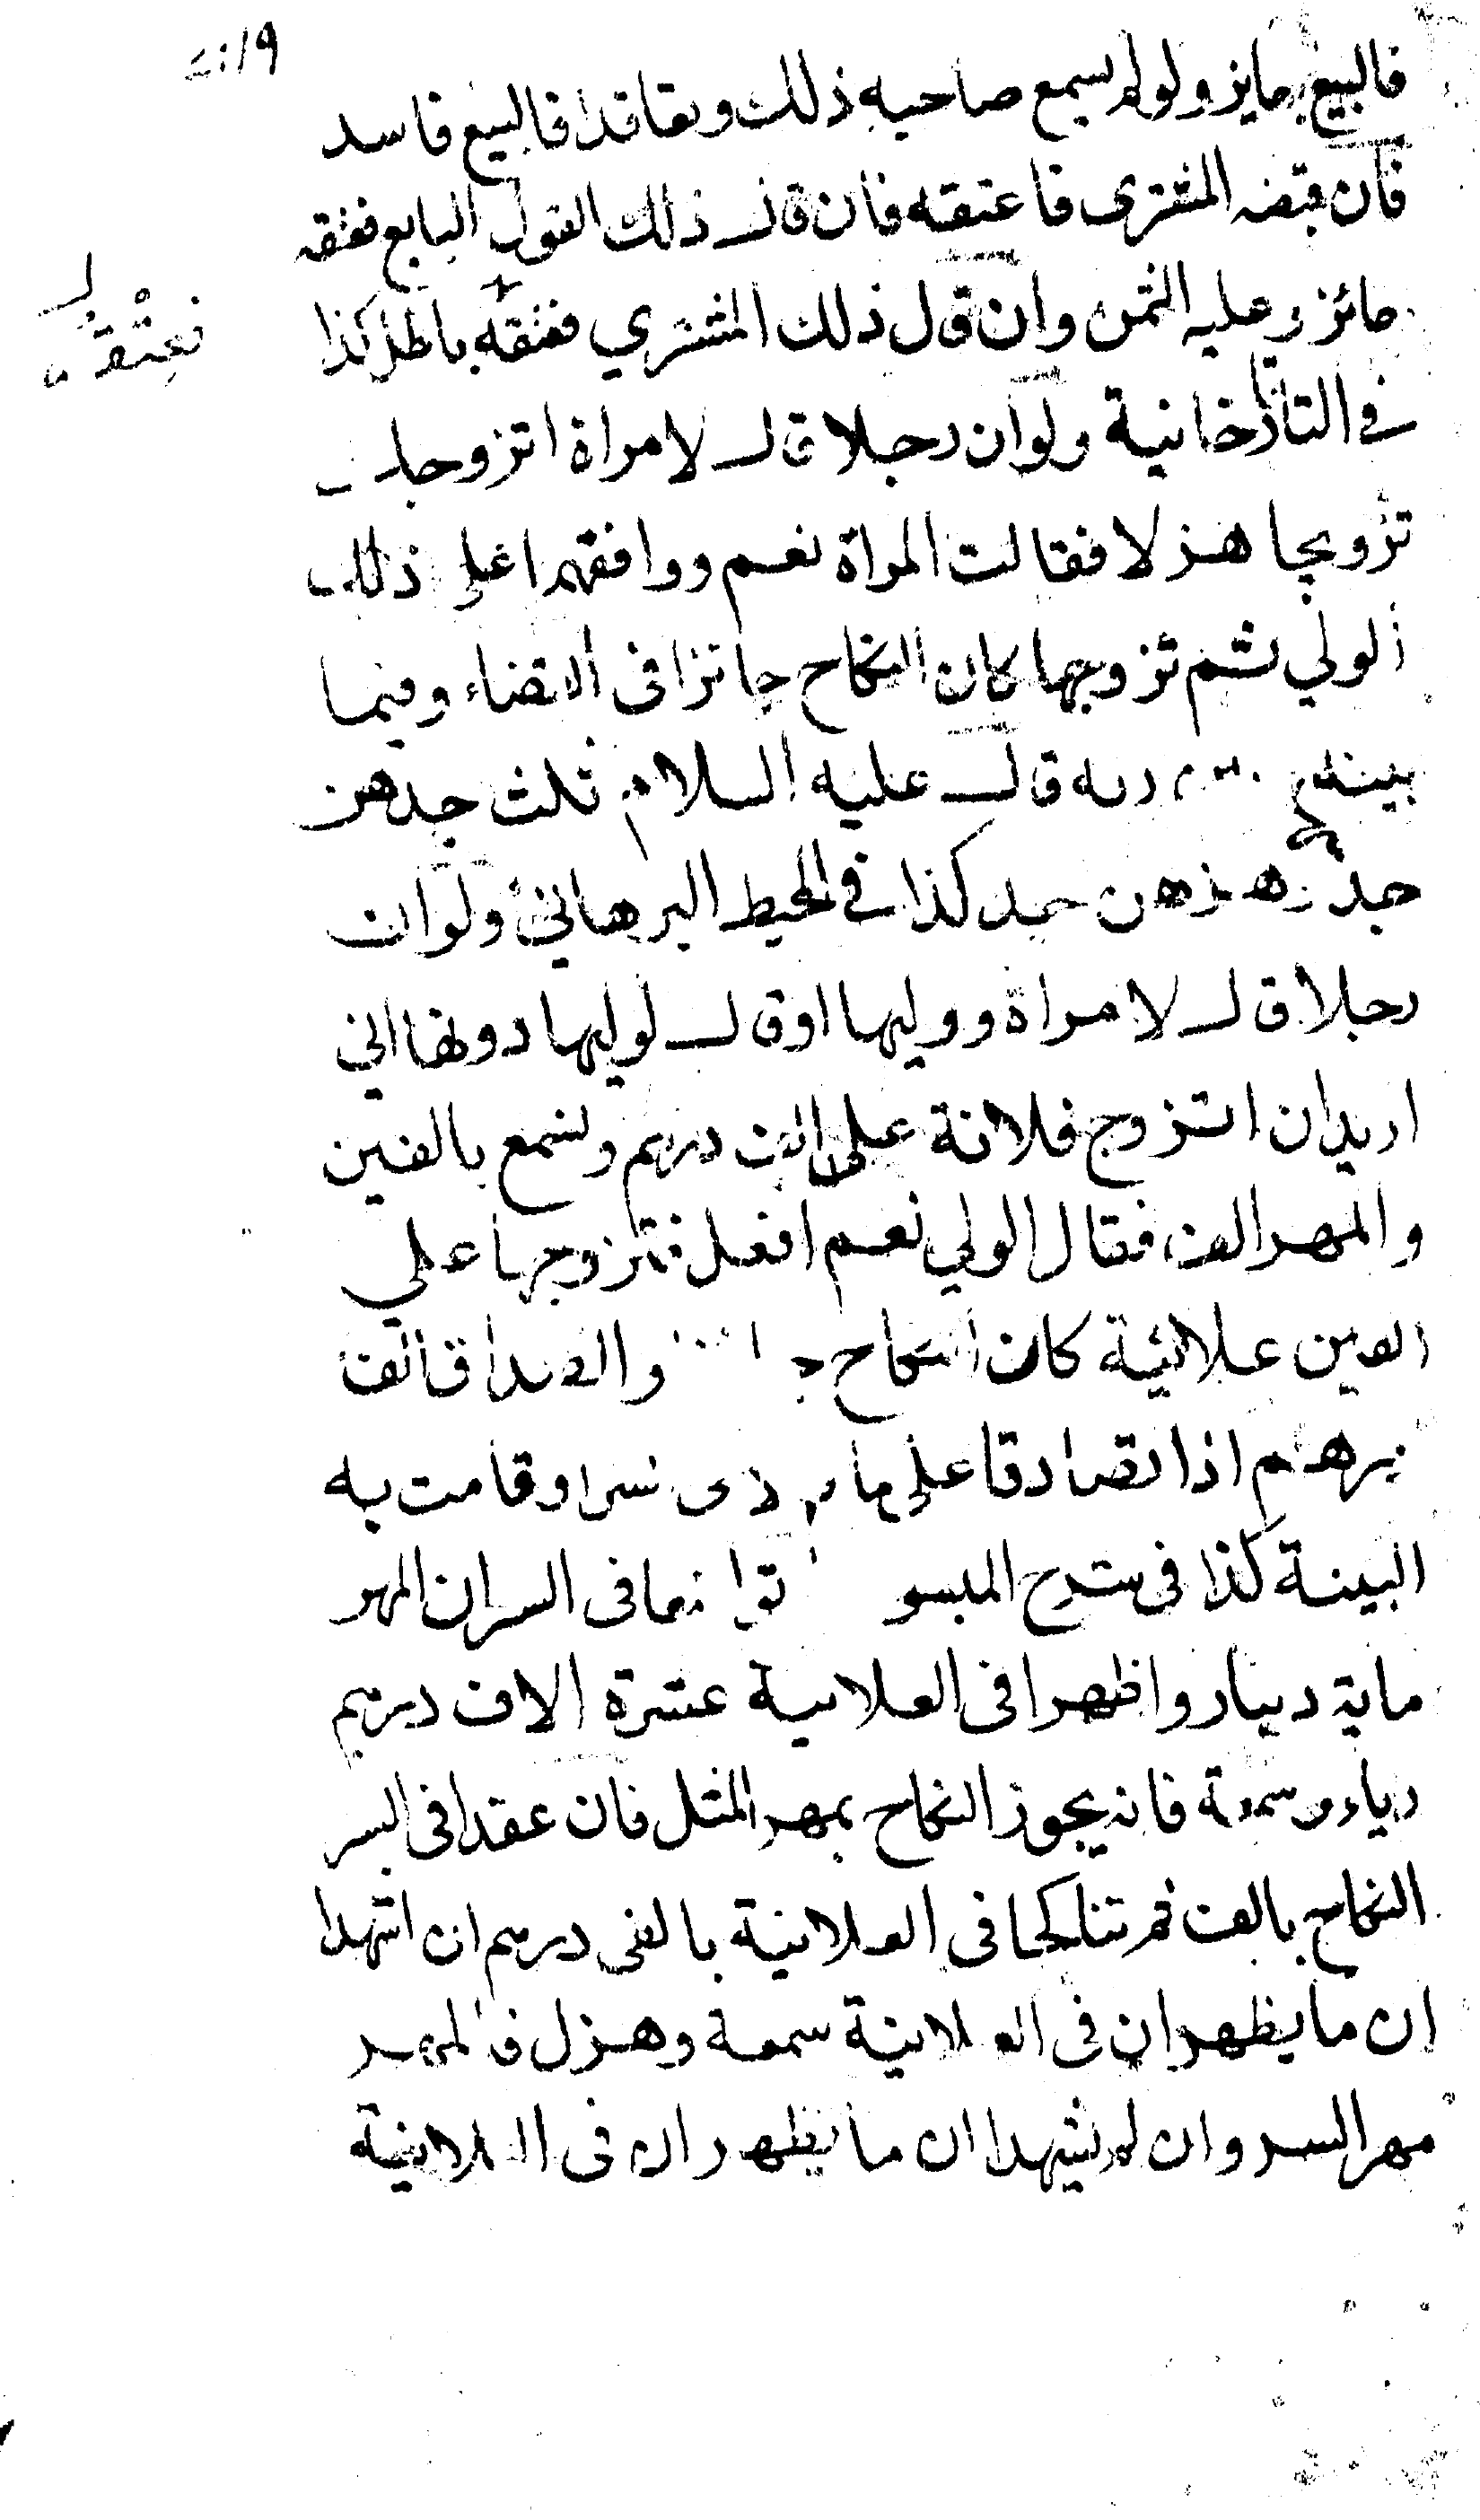 فالبيع جايز ولو لم يسمع صاحبه ذلك وتعاقدا فالبيع فاسد
فان قبضه المشترى فاعتقه فان قال ذلك القول البايع فعتقه
جائز وعليه الثمن وان قال ذلك المشتري فعتقه باطل كذا
فعتقه
في التاتارخانية ولو ان رجلا قال لامراة اتزوجك
تزويجا هزلا فقالت المراة نعم ووافقهما على ذلك
الولي ثم تزوجها كان النكاح جائزا فى القضاء وفيما
بينه قال عليه السلام ثلث جدهن
جد وهزلهن جد كذا في المحيط البرهاني ولو ان
رجلا قال لامراة ووليها او قال لوليها دونها اني
اريد ان اتزوج فلانة على الف درهم ونسمع بالفين
والمهر الف فقال الولي نعم افعل فتزوجها علي
الفين علانية كان النكاح والصداق الف
درهم اذا تصادقا على ما سرا وقامت به
البينة كذا فى شرح المبسو تواضعا فى السر ان المهر
ماية دينار واظهرا فى العلانية عشرة الاف درهم
رياء وسمعة فانه يجوز النكاح بمهر المثل فان عقدا فى السر
النكاح بالف ثم تناكحا فى العلانية بالفى درهم ان اشهدا
ان ما يظهران فى العلانية سمعة وهزل فالمهر
مهر السر وان لم يشهدا ان ما يظهران فى العلانية